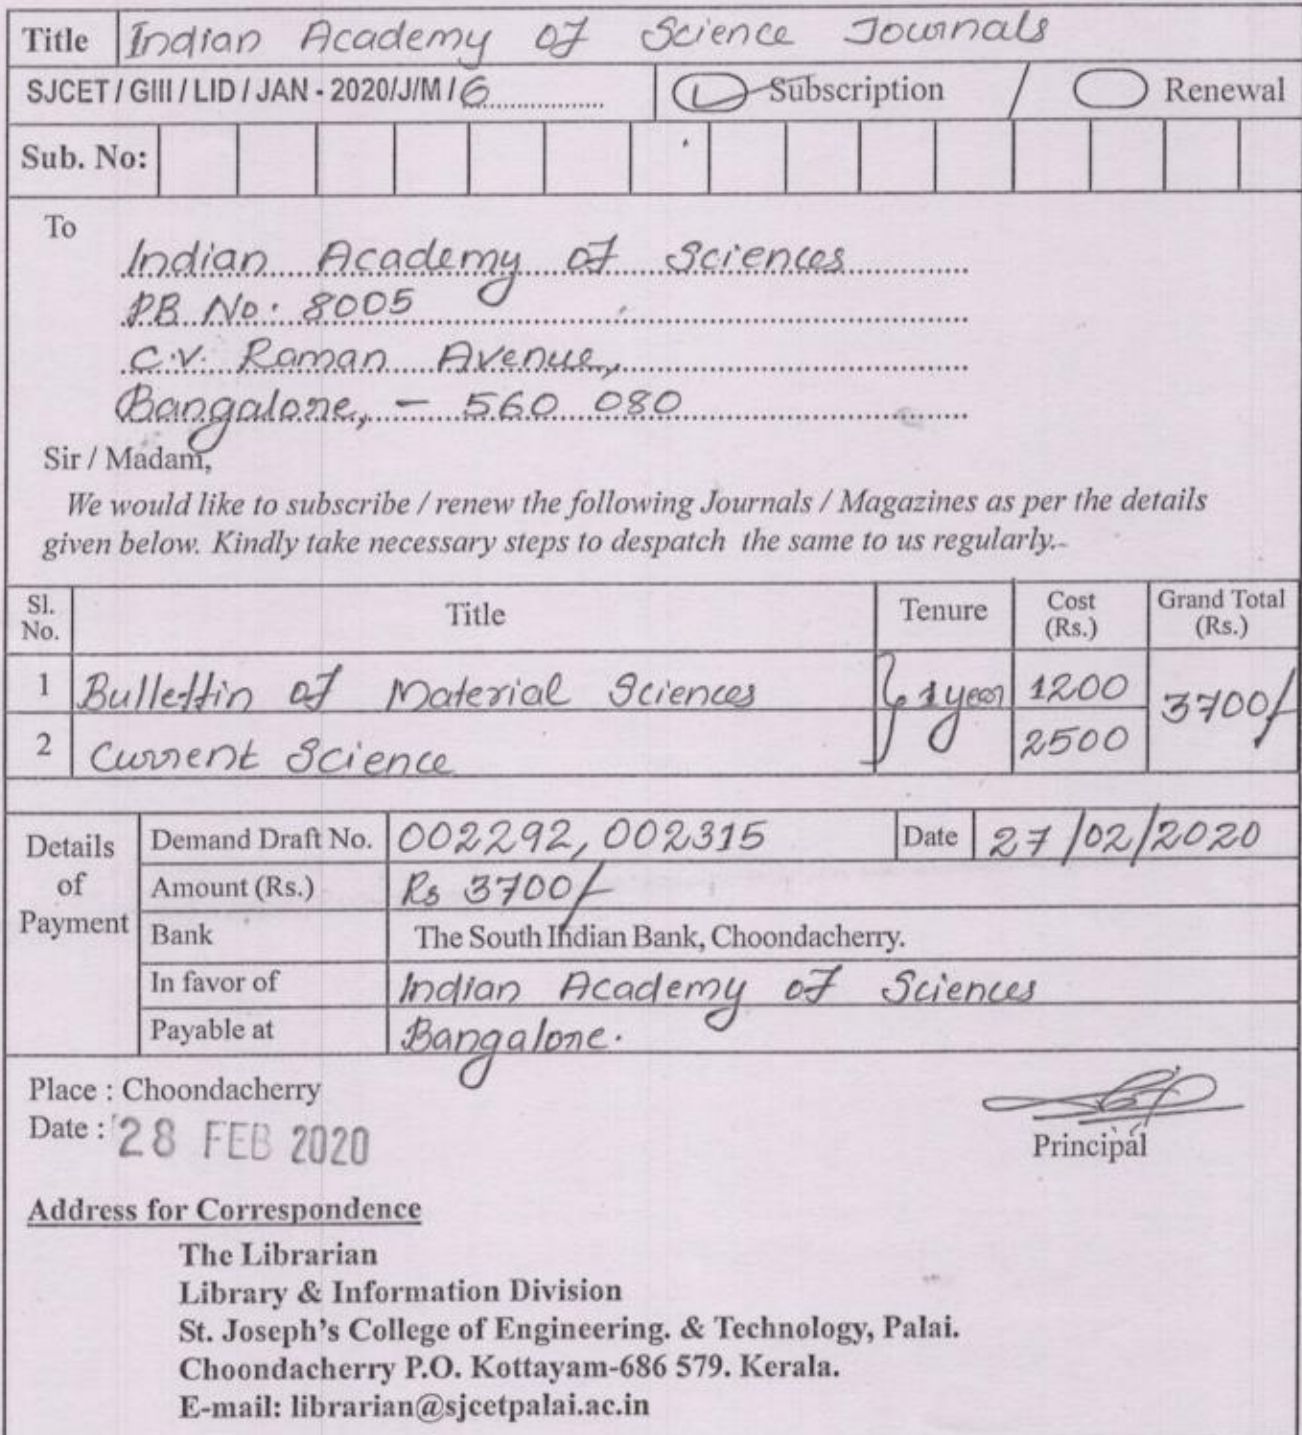 Title Indian Academy of Science Journals
SJCET / GIII / LID / JAN - 2020/J/M / 6 Subscription / Renewal
Sub. No:
To
Indian Academy of Sciences
P.B. No: 8005
C.V. Raman Avenue,
Bangalore, - 560 080
Sir / Madam,
We would like to subscribe / renew the following Journals / Magazines as per the details
given below. Kindly take necessary steps to despatch the same to us regularly.
Sl. No. Title Tenure Cost (Rs.) Grand Total (Rs.)
1 Bullettin of Material Sciences 1 year 1200 3700/-
2 Current Science 2500
Details of Payment
Demand Draft No. 002292, 002315 Date 27/02/2020
Amount (Rs.) Rs 3700/-
Bank The South Indian Bank, Choondacherry.
In favor of Indian Academy of Sciences
Payable at Bangalore.
Place : Choondacherry
Date : 28 FEB 2020
Principal
Address for Correspondence
The Librarian
Library & Information Division
St. Joseph's College of Engineering. & Technology, Palai.
Choondacherry P.O. Kottayam-686 579. Kerala.
E-mail: librarian@sjcetpalai.ac.in